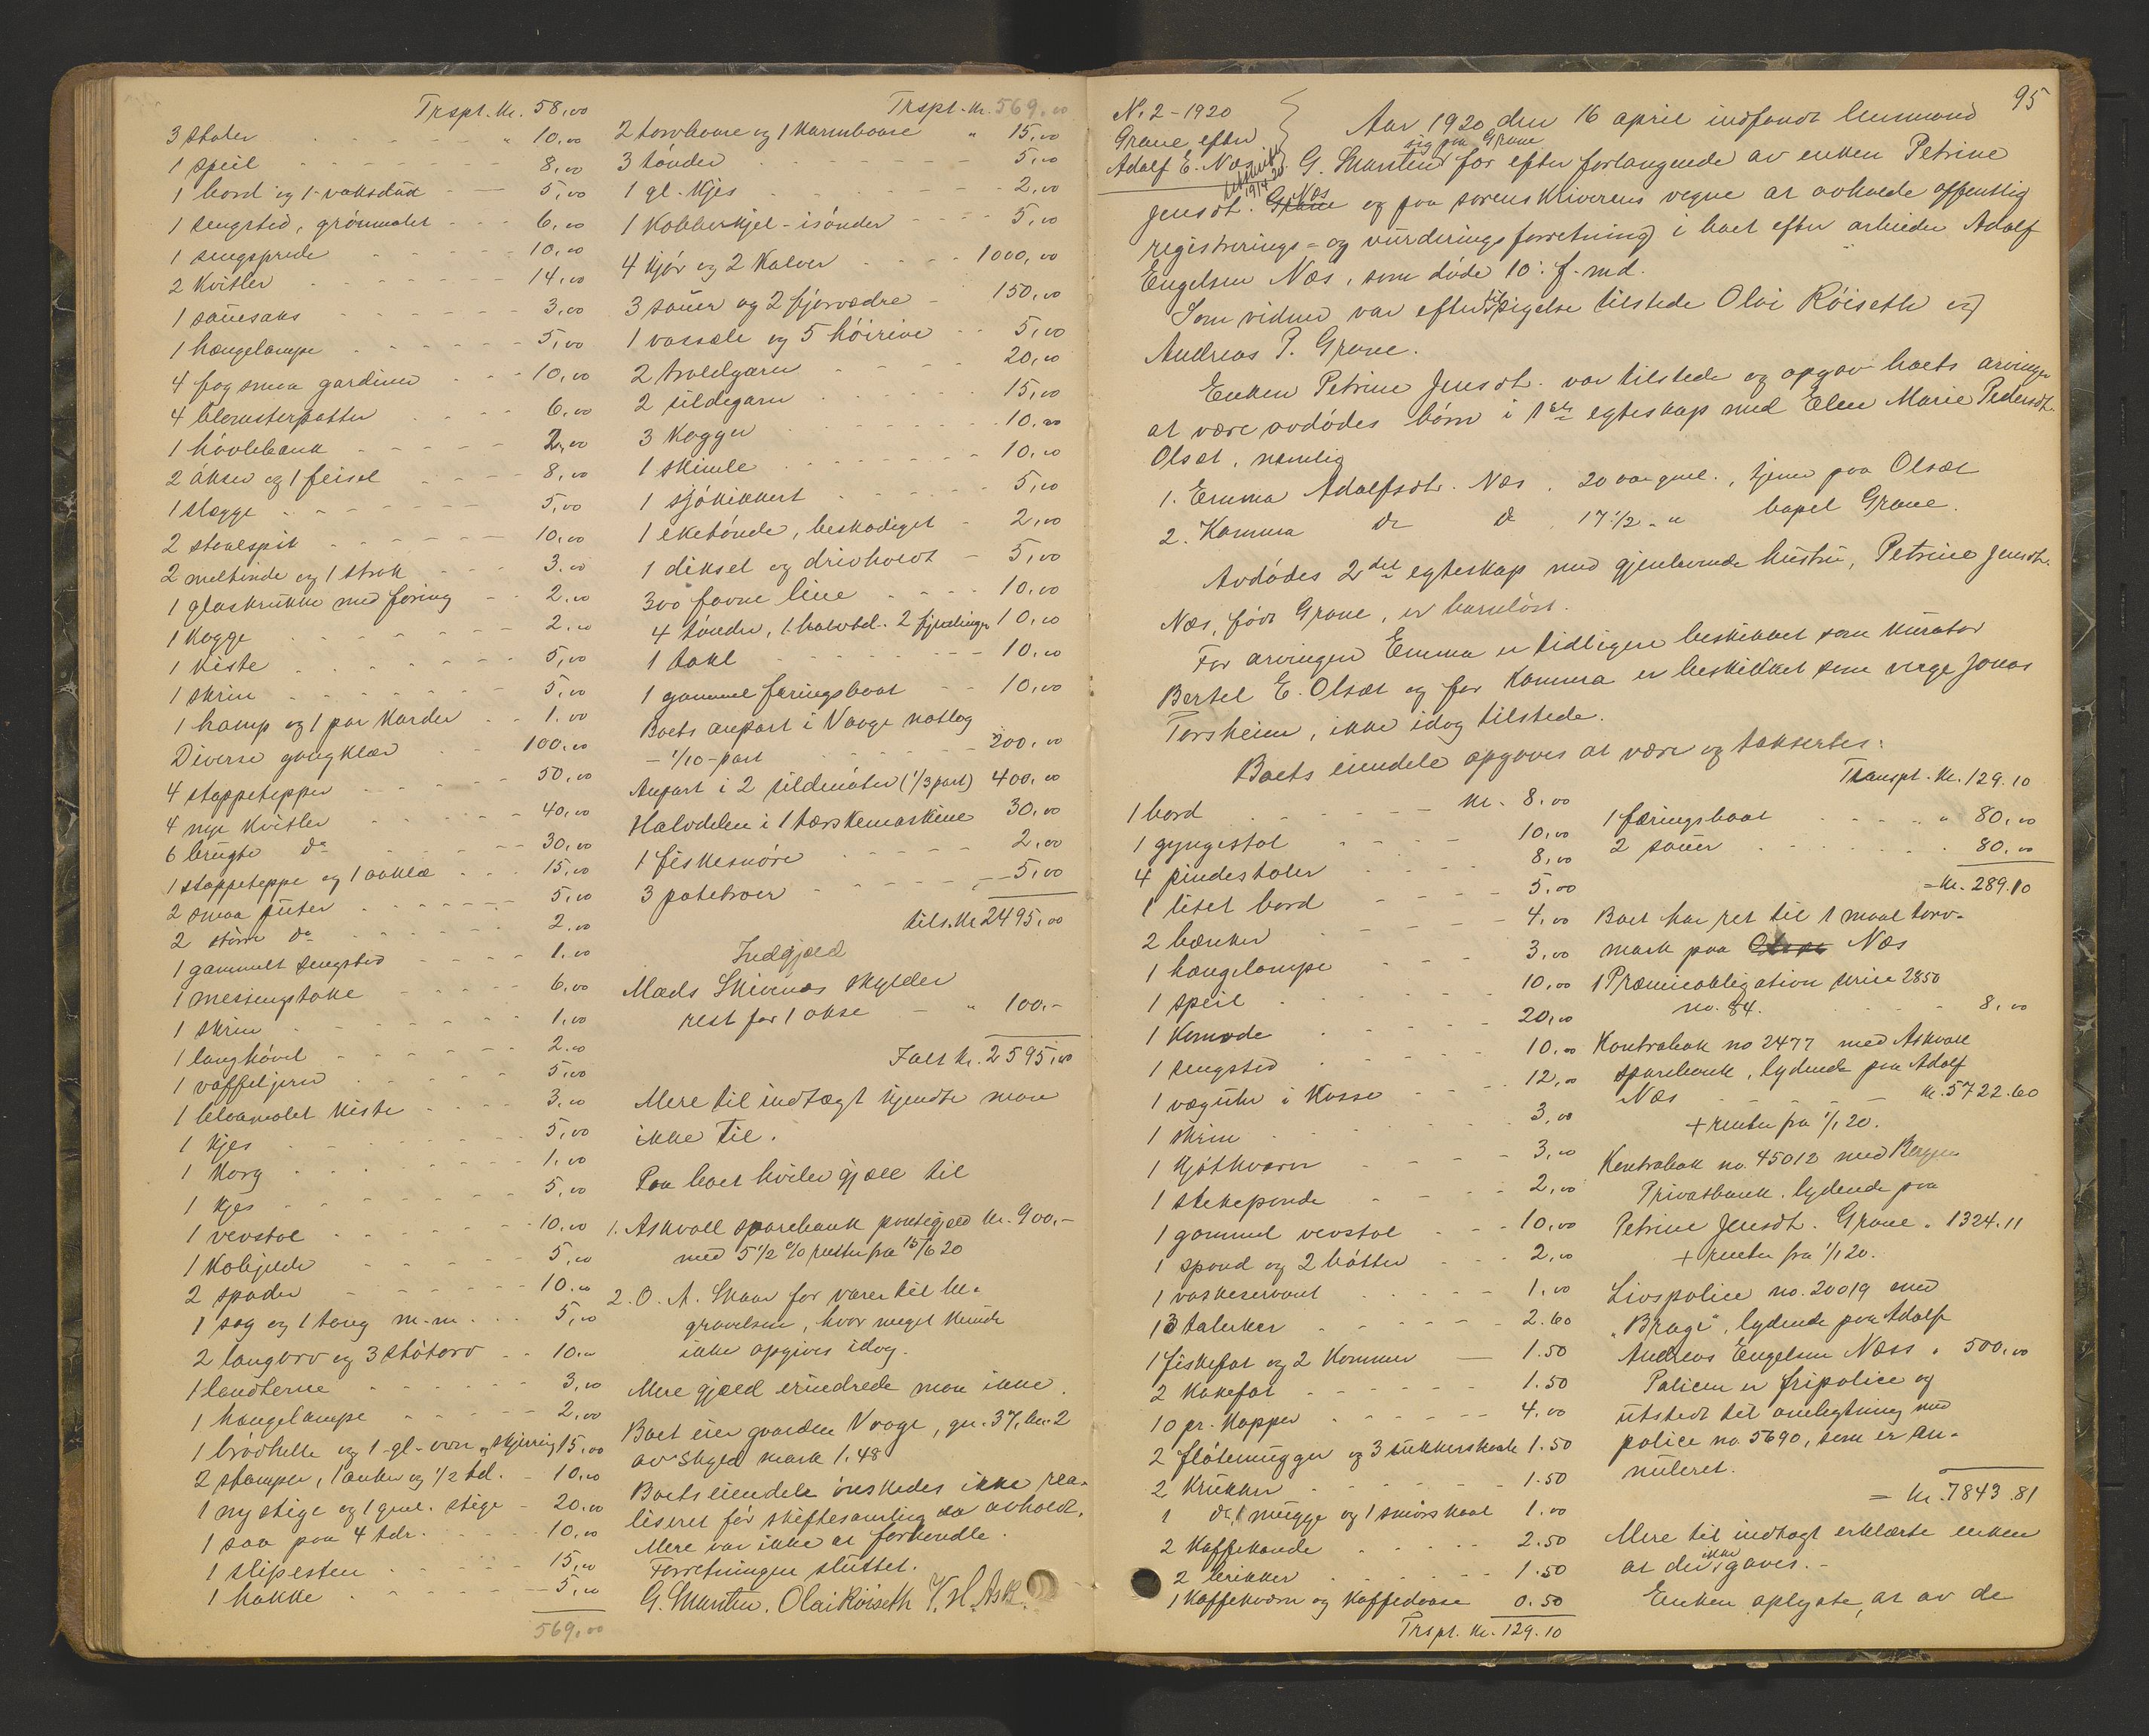 Trspt. Kr. 58,00
3 stoler - - - - - " 10,00
1 speil - - - - - 8,00
1 bord og 1 voksduk - - 5,00
1 sengsted, grönmalet - - 6,00
1 sengsprede - - - - 10,00
2 Kvitler - - - - - 14,00
1 sauesaks - - - - - 3,00
1 hængelampe - - - - 5,00
4 fag smaa gardiner - - - 10,00
4 blomsterpotter - - - - 6,00
1 hövlebænk - - - - - 2,00
2 økser og 1 feisel - - - 8,00
1 slægge - - - - - - 5,00
2 staalspit - - - - - 10,00
2 meltinde og 1 strok - - - 3.00
1 glaskrukke med foring - - 2.00
1 Kagge - - - - - - 2,00
1 Kiste - - - - - - 5,00
1 skrin - - - - - - 5,00
1 hamp og 1 par Karder - - 1.00
Diverse gangklær - - 100,00
4 stoppetepper - - - - 50,00
4 nye Kvitler - - - - 40,00
6 brugte do - - - - 30,00
1 stoppeteppe og 1 aaklæ - - - 15,00
2 smaa puter - - - - - 5,00
2 större do - - - - - 2,00
1 gammelt sengsted - - - - 1.00
1 messingstake - - - - 6.00
1 skrin - - - - - - 1,00
1 langhövel - - - - - 2.00
1 vaffeljern - - - - - 5,00
1 blaamalet Kiste - - - - 3,00
1 Kjes - - - - - - 5,00
1 Korg - - - - - - 1.00
1 Kjes - - - - - - 5,00
1 vevstol - - - - - 10.00
1 Kobjelde - - - - - 5,00
2 spader - - - - - 10.00
1 sag og 1 tang m.m. - - - 5,00
2 langorv og 3 støtorv - - 10.00
1 landterne - - - - - 3,00
1 hængelampe - - - - 2,00
1 brödhelle og 1 gl. ovn og skjerring 15,00
2 stamper, 1 anker og 1/2 td. - 10,00
1 ny stige og 1 gml. stige - 20,00
1 saa paa 4 tdr. - - - - 10,00
1 slipesten - - - - - 15,00
1 hakke - - - - - - 5,00
569,00
Trspt. Kr. 569,00
2 torvbaare og 1 Karmbaare " 15,00
3 tönder - - - - - 5,00
1 gl. Kjes - - - - - 2,00
1 Kobberkjel - isönder - - - 5,00
4 Kjör og 2 Kalver - - - 1000,00
3 sauer og 2 fjorvædre - 150,00
1 vassele og 5 höirive - - 5,00
2 troldgarn - - - - 20,00
2 sildegarn - - - - 15,00
3 Kagger - - - - - 10,00
1 skimle - - - - - 10,00
1 sjökikkert - - - - 5,00
1 eketönde, beskadiget - 2,00
1 diksel og drivholdt - 5,00
300 favne line - - - - 10,00
4 tönder, 1 halvtd. 2 fjerdinger 10,00
1 takl - - - - - - 10,00
1 gammel færingsbaat - - 10,00
Boets anpart i Vaage notlag
- 1/10-part - - - - - 200,00
Anpart i 2 sildenöter (1/3 part) 400,00
Halvdelen i 1 tærskemaskine 30,00
1 fiskesnöre - - - - 2,00
3 potetroer - - - - - 5,00
tils. Kr. 2495,00
Indgjæld
Mads Skivenes skylder
rest for 1 okse - " 100,-
Ialt kr. 2595,00
Mere til indtægt kjendte man
ikke til.
Paa boet hviler gjæld til
1. Askvoll sparebank pantegjæld kr. 900,-
med 5 1/2 % renter fra 15/6 20
2. O. A. Skaar for varer til be-
gravelsen, hvor meget kunde
ikke opgives idag.
Mere gjæld erindrede man ikke.
Boet eier gaarden Vaage, gn. 37, bn. 2
av skyld mark 1.48
Boets eiendele önskedes ikke rea-
liseret för skiftesamling var avholdt.
Mere var ikke at forhandle.
Forretningen sluttet.
G. Smarten. Olai Röiseth
95
N. 2-1920
Grane efter
Adolf E. Næs
Aar 1920 den 16 april indfandt lensmand
sig paa Grane
G. Smarten for efter forlangende av enken Petrine
Næs
Jensdt. Grane og paa sorenskriverens vegne at avholde offentlig
registrerings- og vurderingsforretning i boet efter arbeider Adolf
Engelsen Næs, som døde 10. f. md.
Som vidner var efter tilsigelse tilstede Olai Röiseth og
Andreas P. Grane.
Enken Petrine Jensdt. var tilstede og opgav boets arvinger
at være avdødes börn i 1ste egteskap med Elen Marie Pedersdt.
Olset, nemlig
1. Emma Adolfsdt. Næs, 20 aar gml., tjener paa Olset
2. Kamma do do, 17 1/2 - " bopel Grane.
Avdødes 2det egteskap med gjenlevende hustru, Petrine Jensdt.
Næs, født Grane, er barnløst.
For arvingen Emma er tidligere beskikket som kurator
Bertel E. Olset og for Kamma er beskikket som verge Jonas
Torsheim, ikke idag tilstede.
Boets eiendele opgaves at være og taksertes:
1 bord - - - - - kr. 8,00
1 gyngestol - - - - 10,00
4 pindestoler - - - - 8,00
1 litet bord - - - - 5,00
2 bænker - - - - - 4,00
1 hængelampe - - - - 3,00
1 speil - - - - - 10,00
1 Komode - - - - - 20,00
1 sengsted - - - - 10,00
1 vægur i Kasse - - - 12,00
1 skrin - - - - - 3,00
1 Kjötkvern - - - - 3,00
1 stekepande - - - - 2,00
1 gammel vevstol - - - 10,00
1 spand og 2 bötter - - - 2,00
1 vaskeservant - - - - 1,00
13 talerker - - - - - 2.60
1 fiskefat og 2 Kommer - 1.50
2 Kakefat - - - - - 1.50
10 pr. Kopper - - - - - 4,00
2 flötemugger og 3 sukkerskaale 1.50
2 Krukker - - - - - 1.50
1 do, 1 mugge og 1 smörskaal 1,00
2 Kaffekande - - - - - 2.50
2 brikker - - - - - 1.50
1 Kaffekværn og Kaffedaase 0.50
Trspt. Kr. 129.10
Transpt. Kr. 129.10
1 færingsbaat - - - - " 80,00
2 sauer - - - - - " 80,00
= Kr. 289.10
Boet har ret til 1 maal torv-
mark paa Næs
1 Præmieobligation serie 2850
no. 84. - - - - 8,00
Kontrabok no 2477 med Askvoll
sparebank, lydende paa Adolf
Næs - - kr. 5722.60
+ renter fra 1/1 20.
Kontrabok no. 45012 med Bergens
Privatbank, lydende paa
Petrine Jensdt. Grane " 1324.11
+ renter fra 1/1 20.
Livspolice no. 20019 med
"Brage", lydende paa Adolf
Andreas Engelsen Næss " 500,00
Policen er fripolice og
utstedt til ombytning med
police no. 5690, som er an-
nuleret.
= Kr. 7843.81
Mere til indtægt erklærte enken
ikke
at der gaves. -
Enken oplyste, at av de